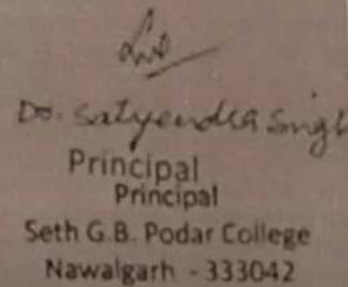 Dr. Satyendra Singh
Principal
Principal
Seth G.B. Podar College
Nawalgarh - 333042